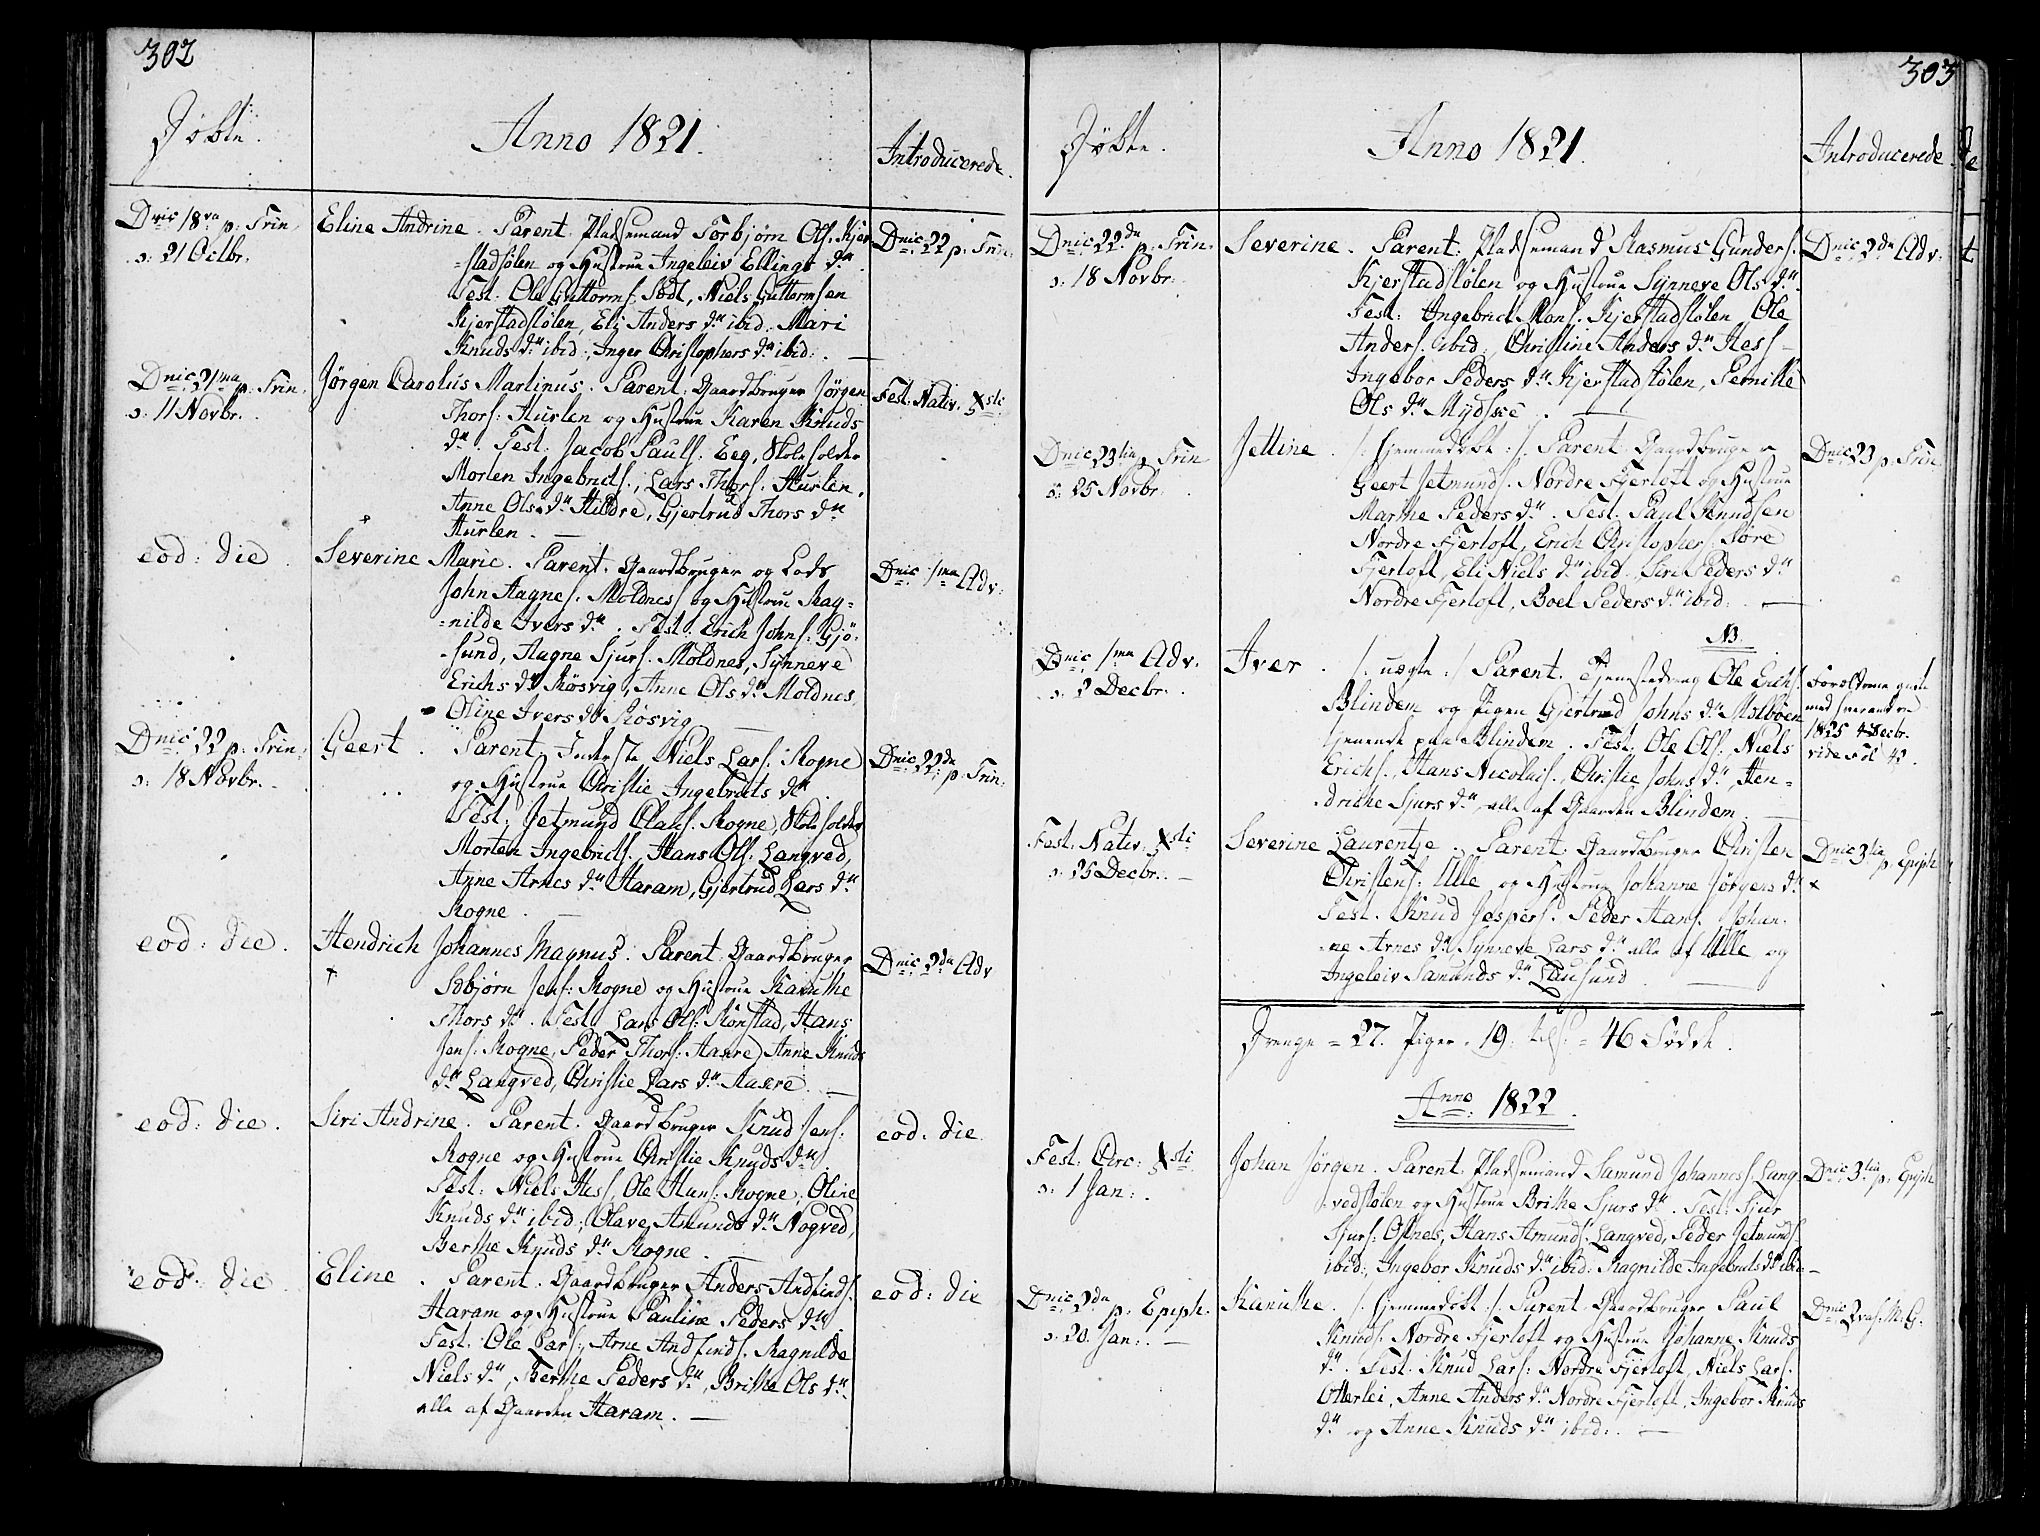 302
Døbte.
Anno 1821.
Introducerede.
Dnic 18va p: Trin.
ɔ: 21 Octbr.
Eline Andrine. Parent. Pladsemand Torbjørn Ols: Kjer
=stadstølen og Hustrue Ingeleiv Ellings dtr.
Test: Ole Guttormf: Södt, Niels Guttormsen
Kjerstadstølen, Eli Anders dtr ibid: Mari
Knuds dtr ibid:, Inger Christophers dtr ibid:.
Dnic: 22 p: Trin:
Dnic 21ma p: Trin.
ɔ: 11 Novbr.
Jörgen Carolus Martinus. Parent: Gaardbruger Jörgen
Thors: Hurlen og Hustrue Karen Knuds
dtr. Test: Jacob Pauls: Eeg, Skoleholder
Morten Ingebricts:, Lars Thors: Hurlen,
Anne Ols dtr Hildre, Gjertrud Thors dtr
Hurlen.
Fest: Nativ: Xsti
eod: die.
Severine Marie. Parent. Gaardbruger og Lods
John Aagnes: Moldnes og Hustrue Rag=
=nilde Ivers dtr. Test: Erich Johns: Gjö=
=sund, Aagne Sjurs: Moldnes, Synneve
Erichs dtr Rösvig, Anne Ols dtr Moldnes,
Oline Ivers dtr Rösvig.
Dnic: 1ma Adv:
Dnic: 22 p: Trin.
ɔ: 18 Novbr.
Geert. Parent. Inderste Niels Lars: Rogne
og Hustrue Christie Ingebricts dtr.
Test: Jetmund Olaus: Rogne, Skoleholder
Morten Ingebricts:, Hans Ols: Langved,
Anne Arnes dtr Haram, Gjertrud Lars dtr
Rogne.
Dnic: 22da p: Trin:
eod: die.
Hendrich Johannes Magnus. Parent: Gaardbruger
Esbjørn Jens: Rogne og Hustrue Karuthe
Thors dtr. Test: Lars Ols: Rönstad, Hans
Jens: Rogne, Peder Thors: Aakre, Anne Knuds
dtr Langved, Christie Lars dtr Aakre.
Dnic: 2da Adv
eod: die.
Siri Andrine. Parent. Gaardbruger Knud Jens:
Rogne og Hustrue Christie Knuds dtr.
Test: Niels Hess, Ole Hans: Rogne, Oline
Knuds dtr ibid:, Olave Amunds dtr Nogved,
Berthe Knuds dtr Rogne.
eod: die.
eod: die
Eline. Parent. Gaardbruger Anders Andfinds:
Haram og Hustrue Pauline Peders dtr.
Test: Ole Lars:, Arne Andfinds: Ragnilde
Niels dtr, Berthe Peders dtr, Brithe Ols dtr
alle af Gaarden Haram.
eod: die
303
Døbte.
Anno 1821.
Introducerede.
Dnic: 22da p: Trin.
ɔ: 18 Novbr.
Severine. Parent. Pladsemand Rasmus Gunders:
Kjerstadstølen og Hustrue Synneve Ols dtr.
Test: Ingebrict Mons: Kjerstadstølen, Ole
Anders: ibid:, Christine Anders dtr Hess
Ingebor Peders dtr Kjerstadstølen, Pernille
Ols dtr Mydske.
Dnic: 2da Adv:
Dnic: 23tia p Trin
ɔ: 25 Novbr:
Jettine. /: hjemmedøbt :/. Parent. Gaardbruger
Geert Jetmunds: Nordre Fjertoft og Hustrue
Marthe Peders dtr. Test. Paul Knudsen
Nordre Fjertoft, Erich Christophers: Søre
Fjertoft, Eli Niels dtr ibid:, Siri Peders dtr
Nordre Fjertoft, Boel Peders dtr ibid:.
Dnic: 23 p: Trin
NB.
Dnic: 1ma Adv.
ɔ: 2 Decbr.
Iver. /: uægte :/ Parent. Tjenestedreng Ole Erichs:
Blindem og Pigen Gjertrud Johns dtr Molböen
tjenende paa Blindem. Test: Ole Ols: Niels
Erichs:, Hans Nicolais:, Christie Johns dtr, Hen=
=driche Sjurs dtr, alle af Gaarden Blindem.
Forældrene givte
med hverandre
1825 4 Decbr.
vide Fol 42.
Fest: Nativ: Xsti
ɔ: 25 Decbr:.
Severine Laurentje. Parent: Gaardbruger Christen
Christens: Ulle og Hustrue Johanne Jørgens dtr
Test. Knud Jespers: Peder Hans: Johan=
=ne Arnes dtr Synneve Lars dtr alle af Ulle og
Ingeleiv Samunds dtr Lausund.
Dnic 3tia p: Epiph
Drenge = 27. Piger. 19. = 46 Födde.
Anno 1822.
Fest: Circ: Xsti
ɔ: 1 Jan:.
Johan Jörgen. Parent. Pladsemand Samund Johanness: Lang
=vedstølen og Hustrue Brithe Sjurs dtr. Test: Sjur
Sjurs: Ostnes, Hans Amunds: Langved, Peder Jetmunds:
ibid:, Ingebor Knuds dtr ibid: Ragnilde Ingebricts dtr ibid
Dnic: 3tia p: Epiph
Dnic: 2da p: Epiph.
ɔ: 20. Jan:.
Karuthe. /: hjemmedøbt :/. Parent. Gaardbruger Paul
Knuds: Nordre Fjertoft og Hustrue Johanne Knuds
dtr. Test. Knud Lars: Nordre Fjertoft, Niels Lars:
Otterlei, Anne Anders dtr Nordre Fjertoft, Ingebor Knuds
dtr og Anne Knuds dtr ibid:.